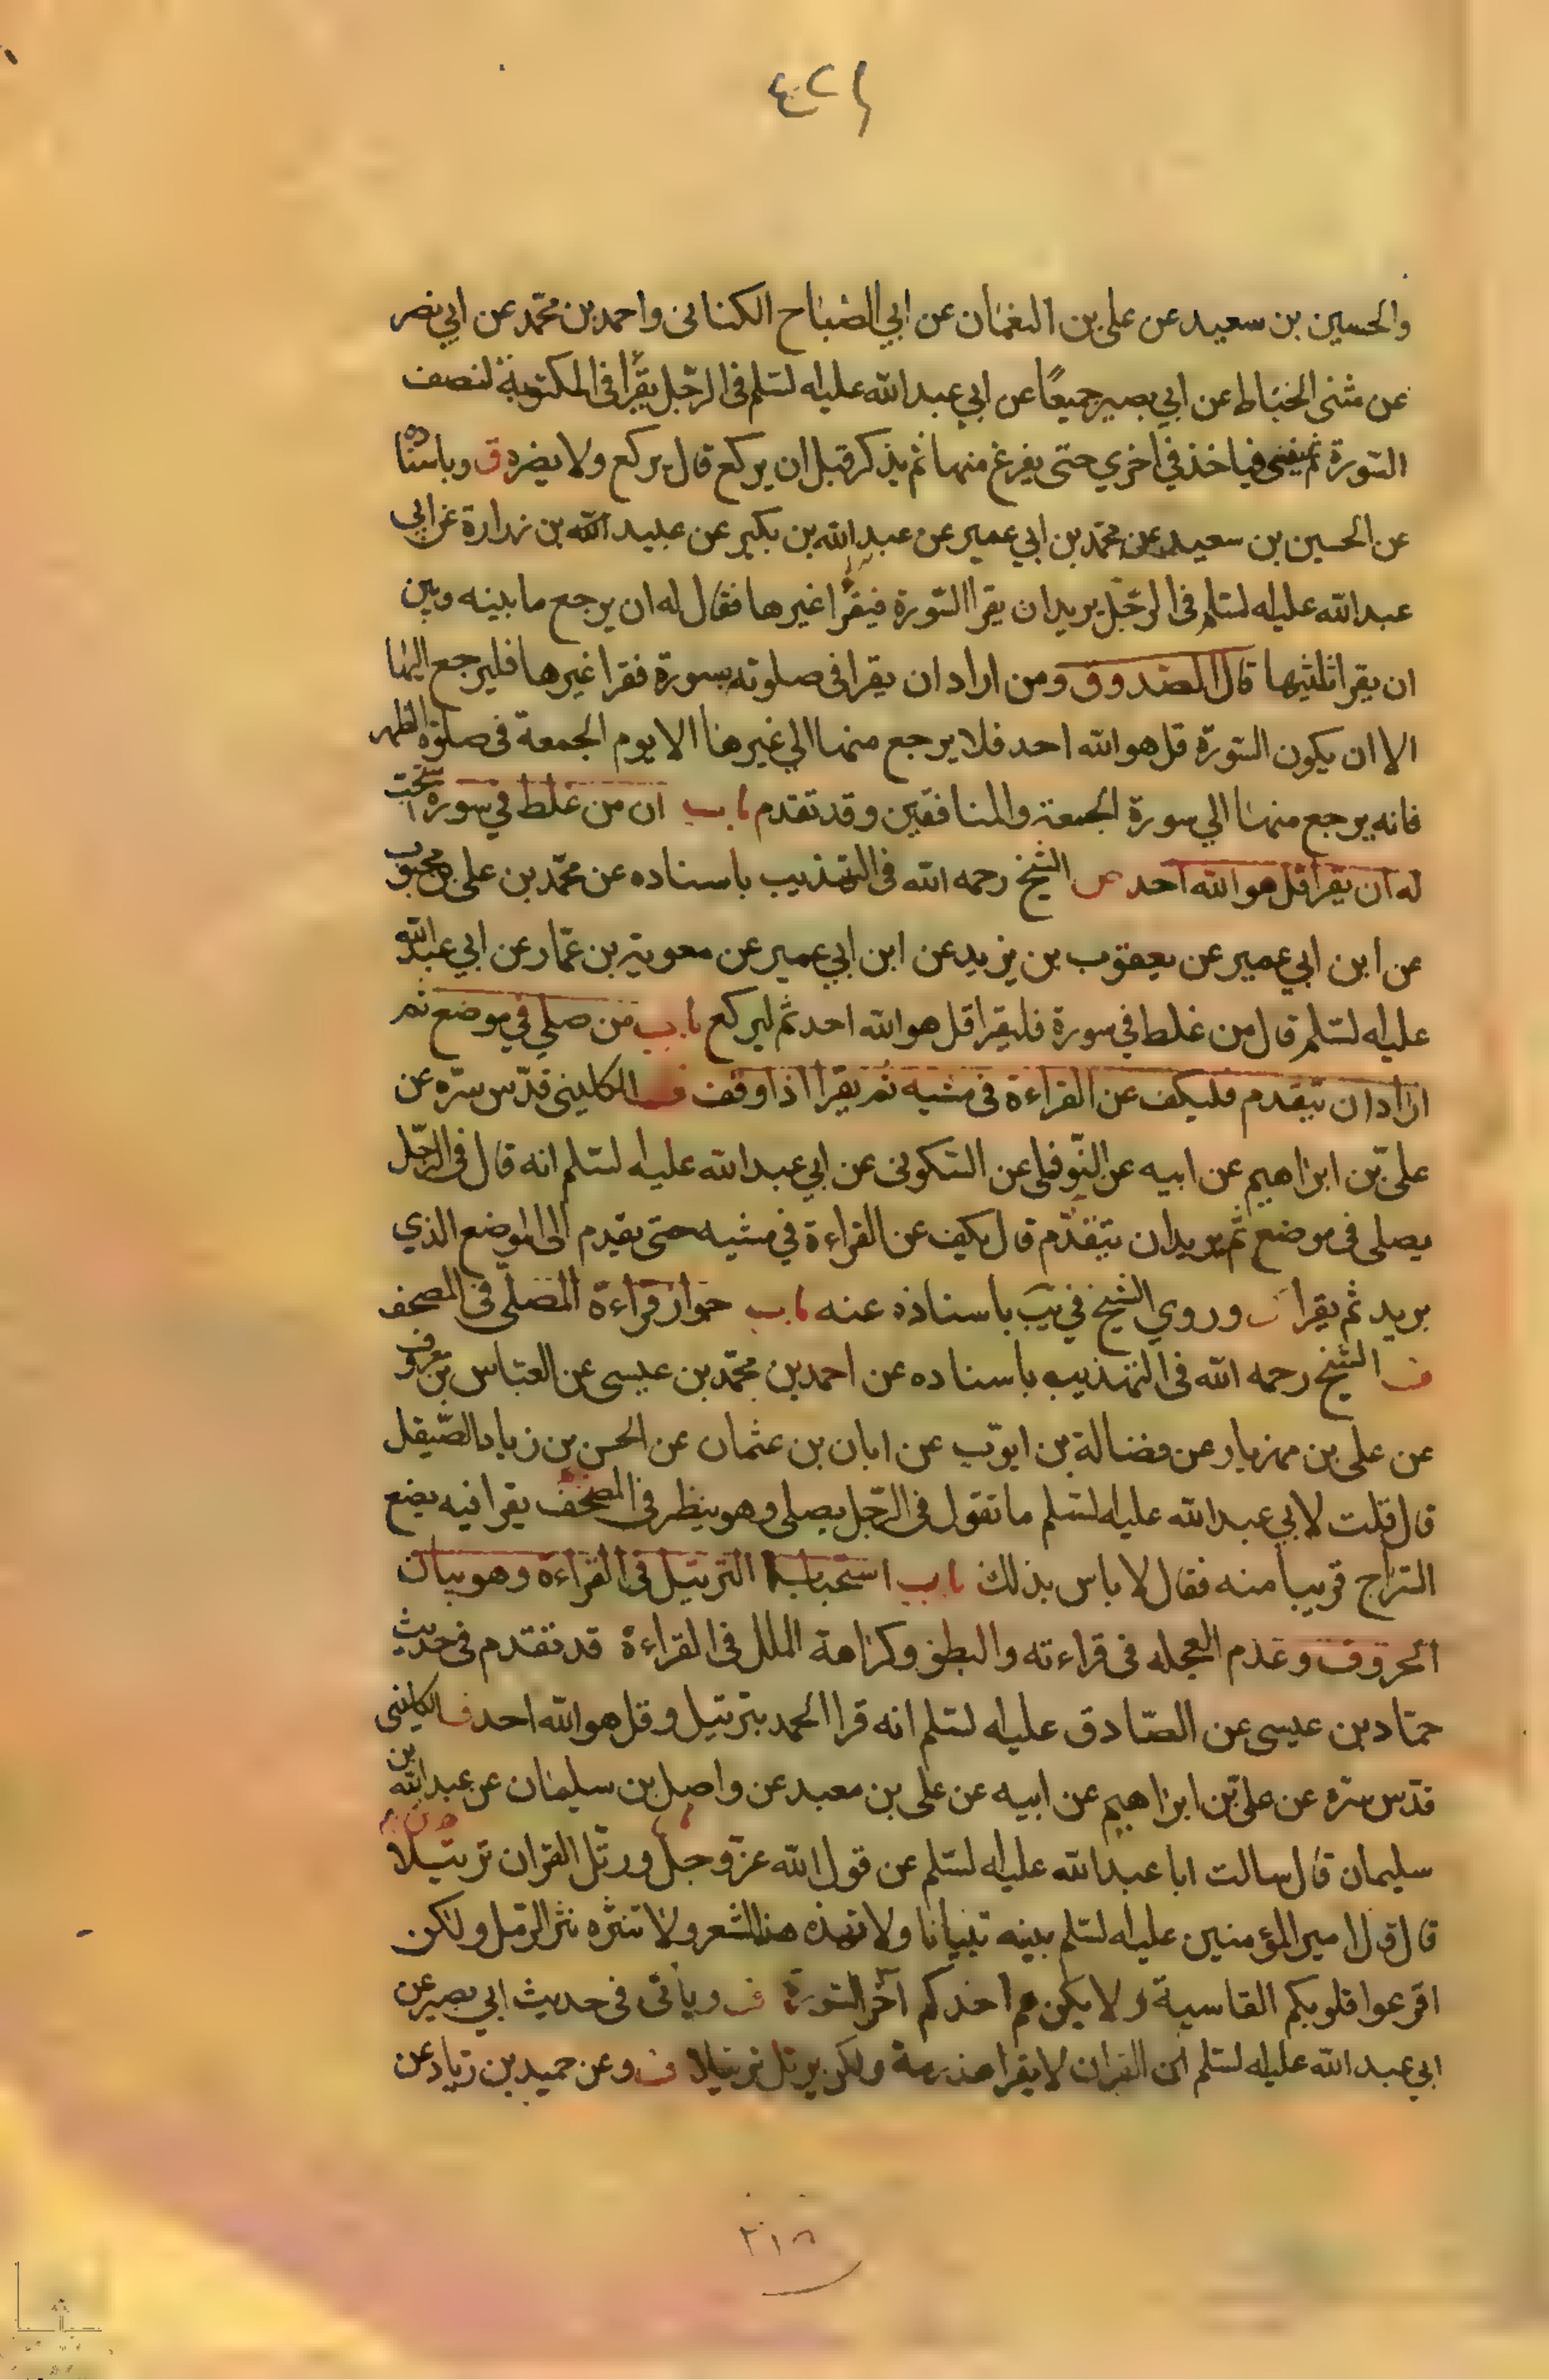 والحسين بن سعيد عن علي بن النعمان عن ابي الصباح الكناني واحمد بن محمد عن ابي نصر
عن مثنى الحناط عن ابي بصير جميعًا عن ابي عبد الله عليه لسلم في الرجل يقرأ في المكتوبة لنصف
السورة ثم ينسى فياخذ في اخري حتى يفرغ منها ثم يذكر قبل ان يركع قال يركع ولا يضره ق وباسناده
عن الحسين بن سعيد عن محمد بن ابي عمير عن عبد الله بن بكير عن عبيد الله بن زرارة عن ابي
عبد الله عليه لسلم في الرجل يريد ان يقرا السورة فيقرأ غيرها فقال له ان يرجع ما بينه وبين
ان يقرا ثلثيها قال الصدوق ومن اراد ان يقرا في صلوته بسورة فقرا غيرها فليرجع اليها
الا ان يكون السورة قل هو الله احد فلا يرجع منها الي غيرها الا يوم الجمعة في صلوة الظهر
فانه يرجع منها الي سورة الجمعة والمنافقين وقد تقدم باب ان من غلط في سورة يستحب
له ان يقرا قل هو الله احد الشيخ رحمه الله في التهذيب باسناده عن محمد بن علي بن محبوب
عن ابن ابي عمير عن يعقوب بن يزيد عن ابن ابي عمير عن معوية بن عمّار عن ابي عبد الله
عليه لسلم قال من غلط في سورة فليقرا قل هو الله احد ثم ليركع باب من صلي في موضع ثم
اراد ان يتقدم فليكف عن القراءة في مشيه ثم يقرا اذا وقف ف الكليني قدّس سرّه عن
عليّ بن ابراهيم عن ابيه عن النّوفلي عن السكوني عن ابي عبد الله عليه لسلم انه قال في الرجل
يصلي في موضع ثم يريد ان يتقدّم قال يكف عن القراءة في مشيه حتى يقدم الى الموضع الذي
يريد ثم يقرا وروي الشيخ في يب باسناده عنه باب جواز قراءة المصلي في المصحف
ف الشيخ رحمه الله في التهذيب باسناده عن احمد بن محمّد بن عيسى عن العبّاس بن معروف
عن علي بن مهزيار عن فضالة بن ايوّب عن ابان بن عثمان عن الحسن بن زياد الصّيقل
قال قلت لابي عبد الله عليه لسلم ما تقول في الرّجل يصلي وهو ينظر في المصحف يقرا فيه يضع
السراج قريبا منه فقال لا باس بذلك باب استحباب الترتيل في القراءة وهو بيان
الحروف وعدم العجله في قراءته والبطؤ وكراهة الملل في القراءة قد تقدم في حديث
حمّاد بن عيسى عن الصّادق عليه لسلم انه قرا الحمد بترتيل وقل هو الله احد ف الكليني
قدّس سرّه عن عليّ بن ابراهيم عن ابيه عن علي بن معبد عن واصل بن سليمان عن عبد الله بن
سليمان قال سالت ابا عبد الله عليه لسلم عن قول الله عزّ وجلّ ورتّل القران ترتيلا
قال قال امير المؤمنين عليه لسلم بينه تبيانا ولا تهذه هذ الشعر ولا تنثره نثر الرمل ولكن
اقرعوا قلوبكم القاسية ولا يكن هم احدكم آخر السورة ف ويأتي في حديث ابي بصير عن
ابي عبد الله عليه لسلم ان القران لا يقرا هذرمة ولكن يرتل ترتيلا ف وعن حميد بن زياد عن
٢١٨